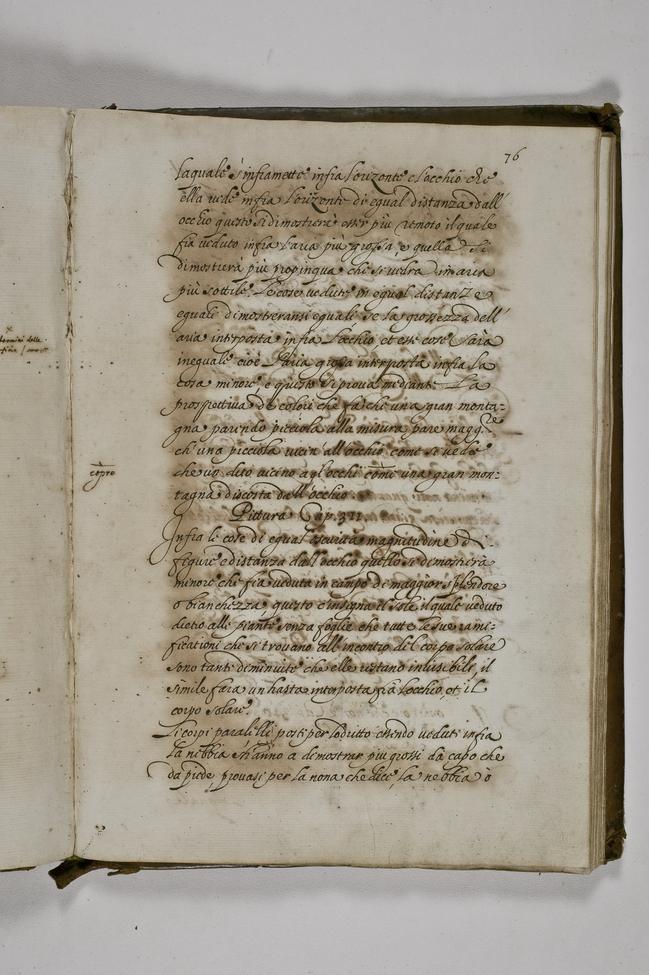 76
laquale s'inframette infra l'orizonte e l'occhio che
ella vede infra l'orizonte di egual distanza dall'
occhio questo si dimostrerà esser piu remoto il quale
fia veduto infra l'aria più grossa, e quella Si
dimostrerà più propinqua che si vedrà in aria
più sottile. Le cose vedute in egual distanze
eguale dimostreransi eguale se la grossezza dell'
aria interposta infra l'occhio et esse cose sarà
ineguale cioè l'aria grossa interposta infra la
cosa minore e questo si prova mediante La
prospettiva de colori che fà che una gran monta=
gna parendo picciola alla misura pare magg.re
ch' una picciola vicin' all'occhio come si vede
che un dito vicino agl'occhi copre una gran mon:
tagna discosta dall'occhio.
Pittura Cap.
Infra le cose di egual oscurita magnitudine di
figure e distanza dall'occhio quello si dimostrerà
minore che fia veduta in campo di maggior splendore
o bianchezza, questo c'insegna il sole il quale veduto
dietro alle piante senza foglie che tutte le sue rami=
ficationi che si trovano all'incontro del corpo Solare
sono tante diminuite che elle restano invisibili, il
simile farà un'hasta interposta frà l'occhio et il
corpo Solare.
Li corpi paralelli posti per lo dritto essendo veduti infra
la nebbia s'hanno a demostrar piu grossi da capo che
da piede, provasi per la nona che dice, la nebbia ò
copre
termini delle